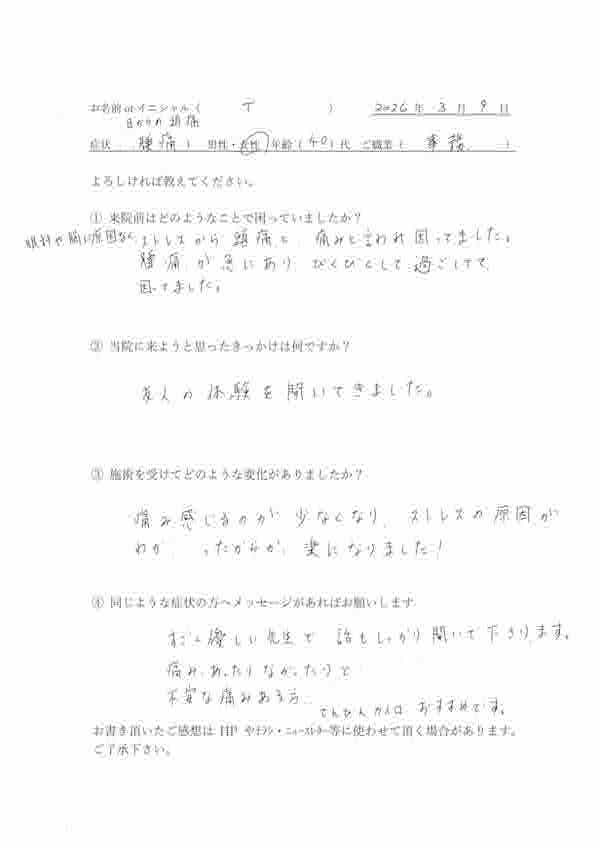 お名前 or イニシャル（ T ） 2026年 3月 9日
目からの頭痛
症状 腫痛 ） 男性・女性 年齢（ 40 ）代 ご職業（ 事務 ）
よろしければ教えてください。
① 来院前はどのようなことで困っていましたか？
眼科や脳に原因なく ストレスから 頭痛と、痛みと言われ 困ってました。
腫痛が急にあり びくびくして過ごしてて
困ってました。
② 当院に来ようと思ったきっかけは何ですか？
友人の体験を聞いてきました。
③ 施術を受けてどのような変化がありましたか？
痛み感じるのが 少なくなり、ストレスの原因が
わかったからか、楽になりました！
④ 同じような症状の方へメッセージがあればお願いします
すごく優しい先生で 話もしっかり聞いて下さります。
痛み、あったりなかったりと
不安な痛みある方 カイロ おすすめです。
お書き頂いたご感想は HP やチラシ・ニュースレター等に使わせて頂く場合があります。
ご了承下さい。